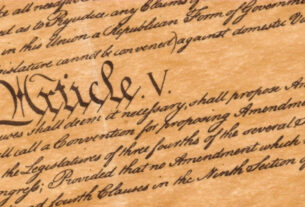 all needful
to Prejudice any Claims of
in this Union a Republican Form of Govern
islature cannot be convened) against domestic V
Article. V.
uses shall deem it necessary, shall propose Am
ll call a Convention for proposing Amendm
the Legislatures of three fourths of the several S
ngress; Provided that no Amendment which
nd fourth Clauses in the Ninth Section of